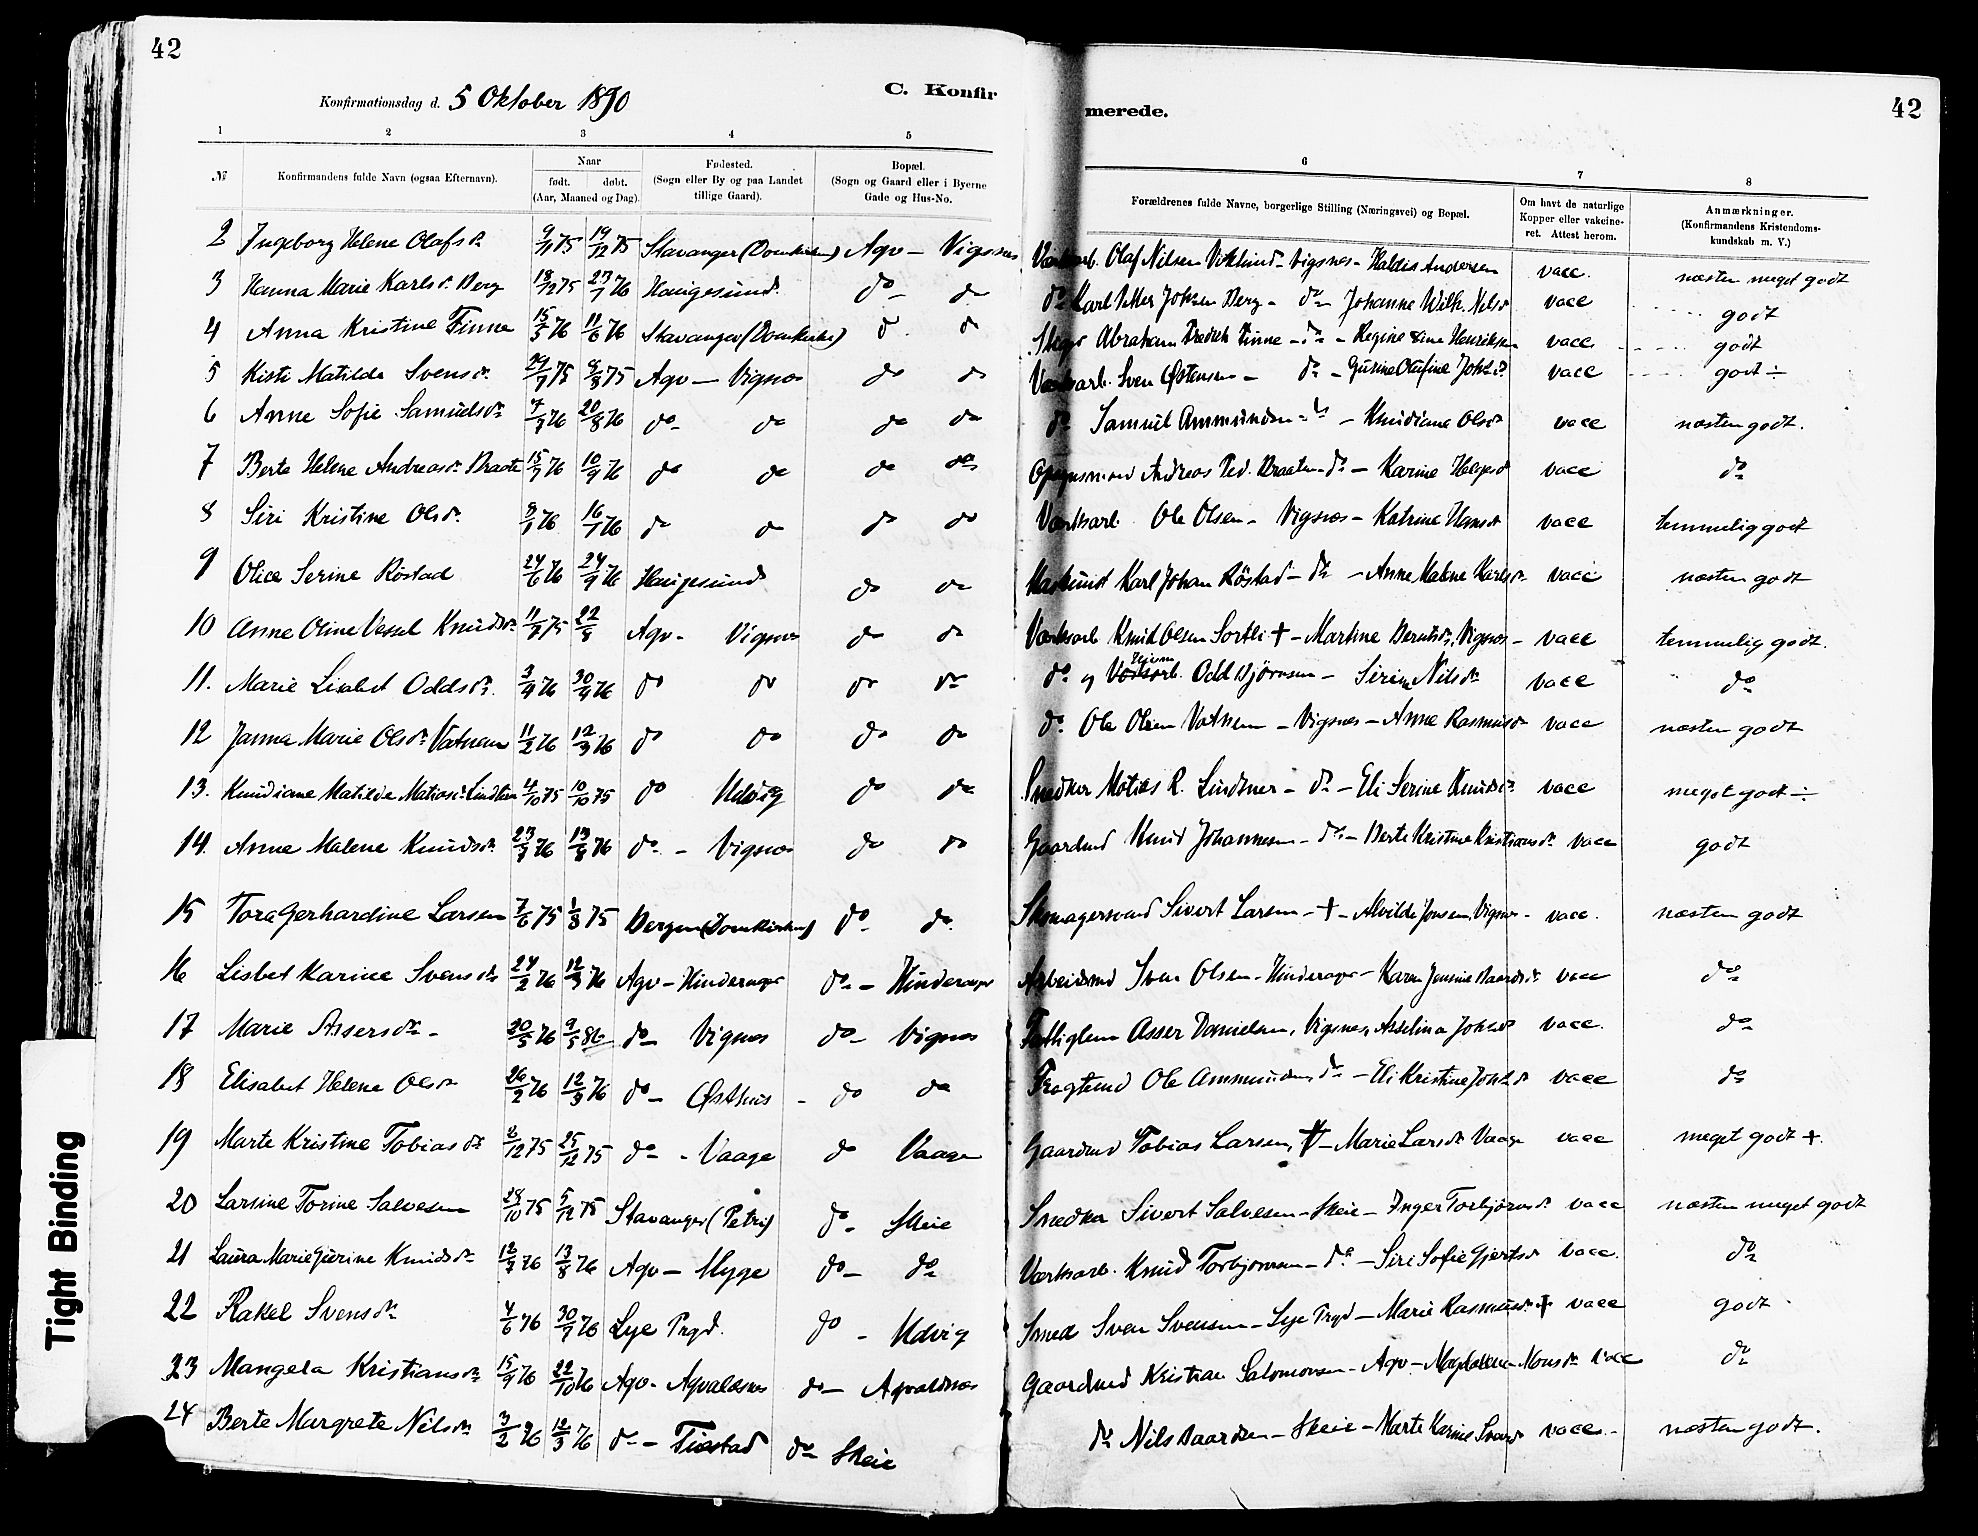 42
Konfirmationsdag d. 5 Oktober 1890
C. Konfir
merede.
42
1 2 3 4 5 6 7 8
№ Konfirmandens fulde Navn (ogsaa Efternavn). Naar født. døbt. (Aar, Maaned og Dag). Fødested. (Sogn eller By og paa Landet tillige Gaard). Bopæl. (Sogn og Gaard eller i Byerne Gade og Hus-No. Forældrenes fulde Navne, borgerlige Stilling (Næringsvei) og Bopæl. Om havt de naturlige Kopper eller vakcineret. Attest herom. Anmærkninger. (Konfirmandens Kristendomskundskab m. V.)
2 Ingeborg Helene Olafsdr 9/11 75 19/12 75 Stavanger (Domkirken) Agv - Vigsnes Olaf Nilsen - Vigsnes - Haldis Andersen vacc. næsten meget godt
3 Hanna Marie Karlsdr Berg 18/12 75 23/1 76 Haugesund do do do Karl Petter Johsen Berg - do - Johanne Wilh. Nilsdr vacc godt
4 Anna Kristine Finne 15/3 76 11/6 76 Stavanger (Domkirke) do do Abraham Fredrik Finne - do - Regine Henriksen vacc godt
5 Matilda Svensdr 75 8/8 75 Agv - Vigsnes do do Sven Østensen - do - Gurine Olufine Johsdr vacc godt ÷
6 Anne Sofie Samuelsdr 7/7 76 20/8 76 do do do do do Samuel Ammundsen - do - Knudiane Olsdr vacc næsten godt.
7 Berte Helene Andreasdr Braate 15/7 76 10/9 76 do do do do Andreas Ped. Braaten - do - Karine Helgesdr vacc do
8 Siri Kristine Olsdr 8/1 76 16/1 76 do do do do Værksarb Ole Olsen - Vigsnes - Katrine Hansdr vacc temmelig godt
9 Olice Serine Röstad 24/6 76 24/9 76 Haugesund do do Maskinist Karl Johan Röstad - do - Anne Malene Karlsdr vacc næsten godt
10 Anne Oline Vessel Knudsdr 11/7 75 22/8 Agv - Vigsnes do do Værksarb Knud Olsen Sortli + - Martine Berntsdr, Vigsnes - vacc temmelig godt.
11. Marie Lisabet Oddsdr. 3/9 76 30/9 76 do do do do do Odd Bjørnsen - Sirine Nilsdr vacc do
12 Janna Marie Olsdr Vatnem 11/2 76 12/3 76 do do do do do Ole Olsen Vatnem - Vigsnes - Anne Rasmusdr vacc næsten godt
13. Knudiane Matilde Matiasdr Lindtner 4/10 75 10/10 75 do Udvig do do Snedker Matias R. Lindtner - do - Eli Serine Knudsdr vacc meget godt ÷
14. Anne Malene Knudsdr 23/7 76 13/8 76 do - Vigsnes do do Gaardmd Knud Johannesen - do - Berte Kristine Kristiansdr vacc godt
15 Tora Gerhardine Larsen 7/6 75 1/8 75 Bergen (Domkirken) do do Skomagersvend Sivert Larsen - + - Alvilde Jonsen, Vigsnes - vacc. næsten godt
16 Lisbet Karine Svensdr 24/2 76 12/3 76 Agv - Hinderager do - Hinderager Arbeidsmd Sven Olsen - Hinderager - Karen Jensine Baardsdr vacc do
17 Marie Assersdr - 20/5 76 9/5 86 do - Vigsnes do - Vigsnes Fattiglem Asser Danielsen, Vigsnes, Asselina Johsdr vacc. do
18 Elisabet Helene Olsdr 26/2 76 12/3 76 do - Østhus - do do Ole Ammundsen, do - Eli Kristine Johsdr vacc do
19 Marte Kristine Tobiasdr 2/12 75 25/12 75 do - Vaage do Vaage Gaardmd Tobias Larsen, + - Marie Larsdr Vaage vacc meget godt +.
20 Larsine Torine Salvesen 28/10 75 5/12 75 Stavanger (Petri) do - Skeie Snedker Sivert Salvesen - Skeie - Inger Torbjørnsdr vacc næsten meget godt
21 Laura Marie Gurine Knudsdr 12/7 76 13/8 76 Agv - Myge do - do Værksarb. Knud Torbjørnsen - do - Siri Sofie Gjertsdr vacc. do
22 Rakel Svensdr 4/6 76 30/7 76 Lye Prgd. do - Udvig Smed Sven Svensen - Lye Prgd - Marie Rasmusdr + vacc godt
23 Mangela Kristiansdr 15/9 76 22/10 76 Agv - Agvaldsnes do - Agvaldnæs Gaardmd Kristian Salomonsen - Agv - Magdalene Monsdr vacc do
24 Berte Margrete Nilsdr 3/2 76 12/3 76 do - Tiøstad do Skeie do Nils Baardsen - Skeie - Marte Karine Svensdr vacc. - næsten godt.
Tight Binding